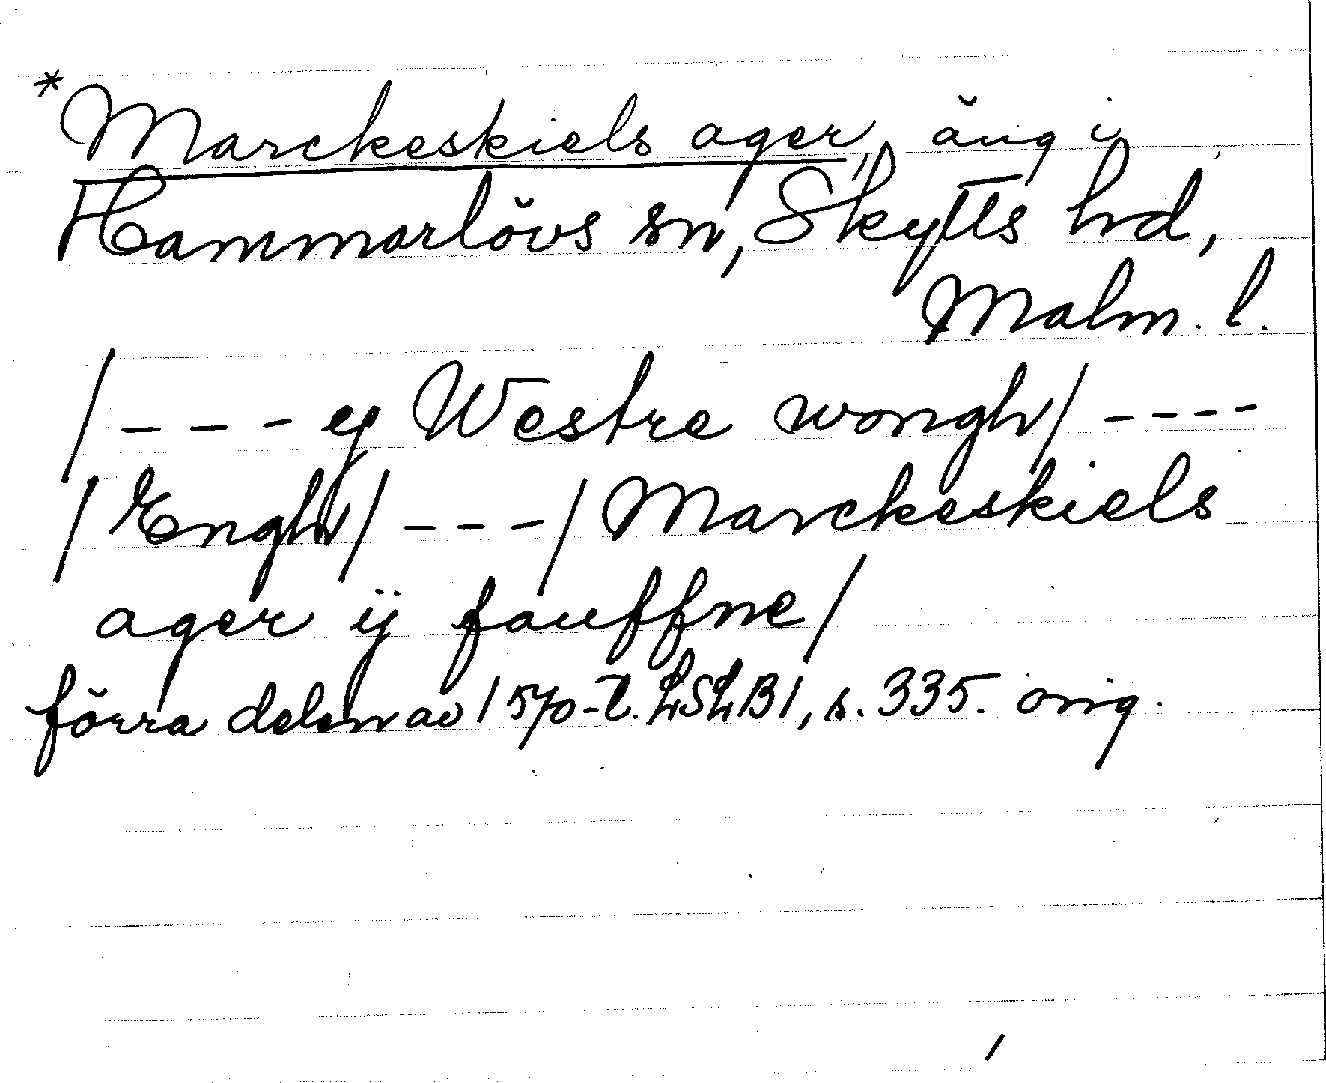 *Marckeskiels ager, äng i
Hammarlövs sn, Skytts hd,
Malm. l.
/ - - - ey Westre wongh / - - - -
/ Engh / - - - / Marckeskiels
ager ij fauffne /
förra delen av 1570-t. LSLB1, s. 335. orig.